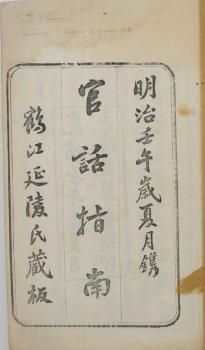 明治壬午歳夏月鐫
官話指南
鶴江延陵氏蔵板